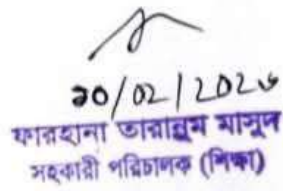 ১০/০২/২০২৬
ফারহানা তারান্নুম মাসুদ
সহকারী পরিচালক (শিক্ষা)